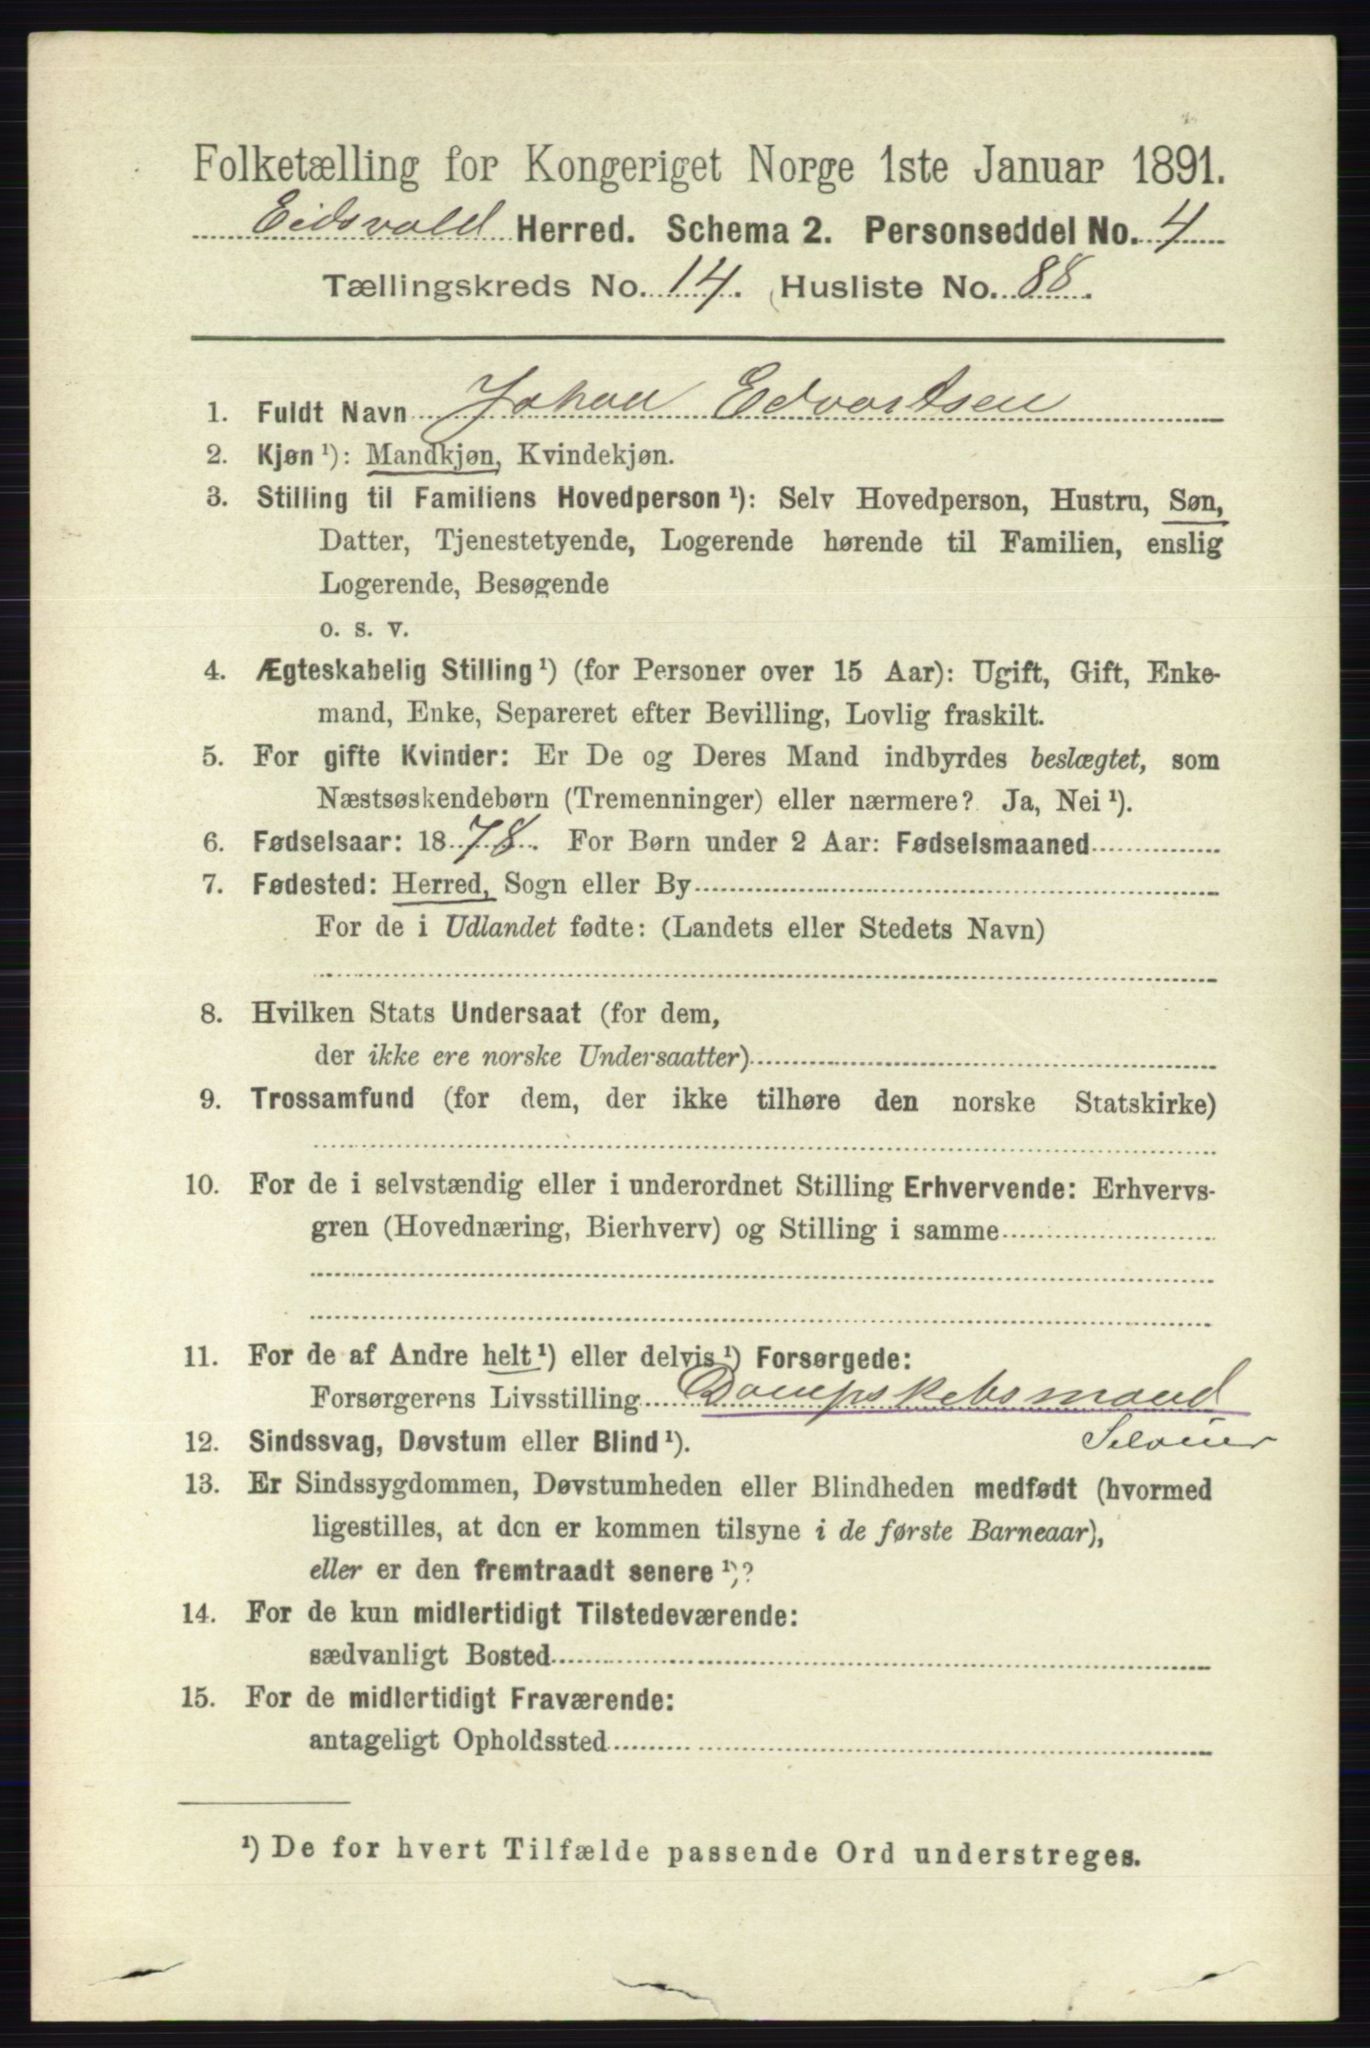 Folketælling for Kongeriget Norge 1ste Januar 1891.
Eidsvold Herred. Schema 2. Personseddel No. 4
Tællingskreds No. 14. Husliste No. 88.
1. Fuldt Navn Johan Edvartsen
2. Kjøn ¹): Mandkjøn, Kvindekjøn.
3. Stilling til Familiens Hovedperson ¹): Selv Hovedperson, Hustru, Søn,
Datter, Tjenestetyende, Logerende hørende til Familien, enslig
Logerende, Besøgende
o. s. v.
4. Ægteskabelig Stilling ¹) (for Personer over 15 Aar): Ugift, Gift, Enke-
mand, Enke, Separeret efter Bevilling, Lovlig fraskilt.
5. For gifte Kvinder: Er De og Deres Mand indbyrdes beslægtet, som
Næstsøskendebørn (Tremenninger) eller nærmere? Ja, Nei ¹).
6. Fødselsaar: 1878. For Børn under 2 Aar: Fødselsmaaned
7. Fødested: Herred, Sogn eller By
For de i Udlandet fødte: (Landets eller Stedets Navn)
8. Hvilken Stats Undersaat (for dem,
der ikke ere norske Undersaatter)
9. Trossamfund (for dem, der ikke tilhøre den norske Statskirke)
10. For de i selvstændig eller i underordnet Stilling Erhvervende: Erhvervs-
gren (Hovednæring, Bierhverv) og Stilling i samme
11. For de af Andre helt ¹) eller delvis ¹) Forsørgede:
Forsørgerens Livsstilling Dampskebsmand
12. Sindssvag, Døvstum eller Blind ¹).
13. Er Sindssygdommen, Døvstumheden eller Blindheden medfødt (hvormed
ligestilles, at den er kommen tilsyne i de første Barneaar),
eller er den fremtraadt senere ¹)?
14. For de kun midlertidigt Tilstedeværende:
sædvanligt Bosted
15. For de midlertidigt Fraværende:
antageligt Opholdssted
¹) De for hvert Tilfælde passende Ord understreges.